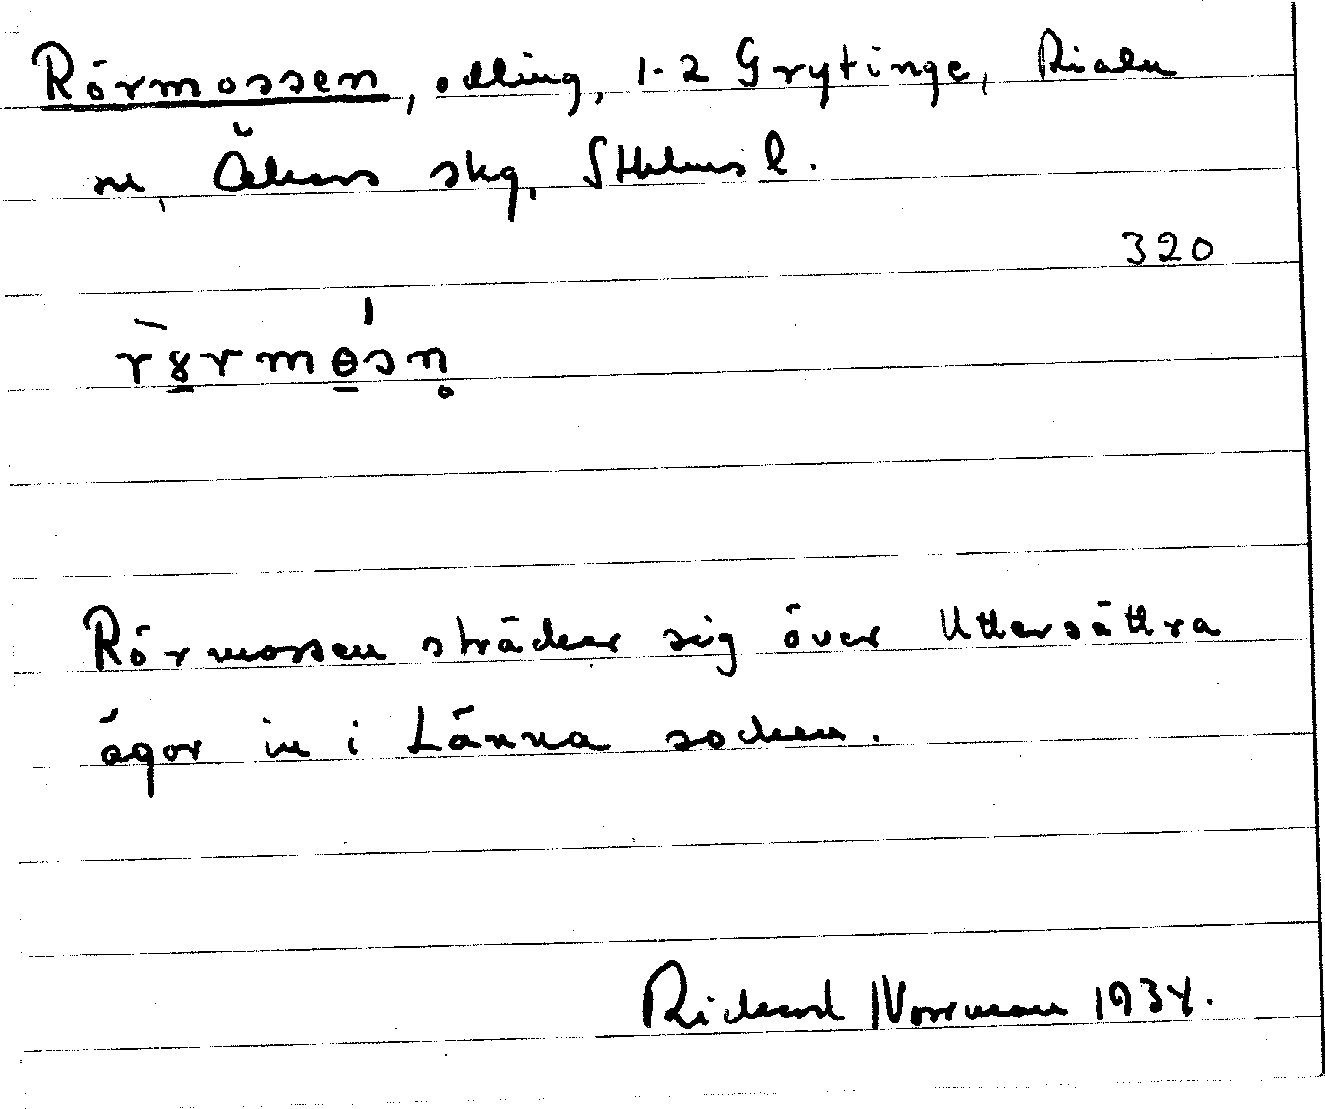 Rörmossen, odling, 1-2 Grytinge, Riala
sn, Åkers skg, Sthlms l.
320
rör̀mosn̥
Rörmossen sträcker sig över Uttersättra
ägor in i Länna socken.
Rickard Norrman 1934.